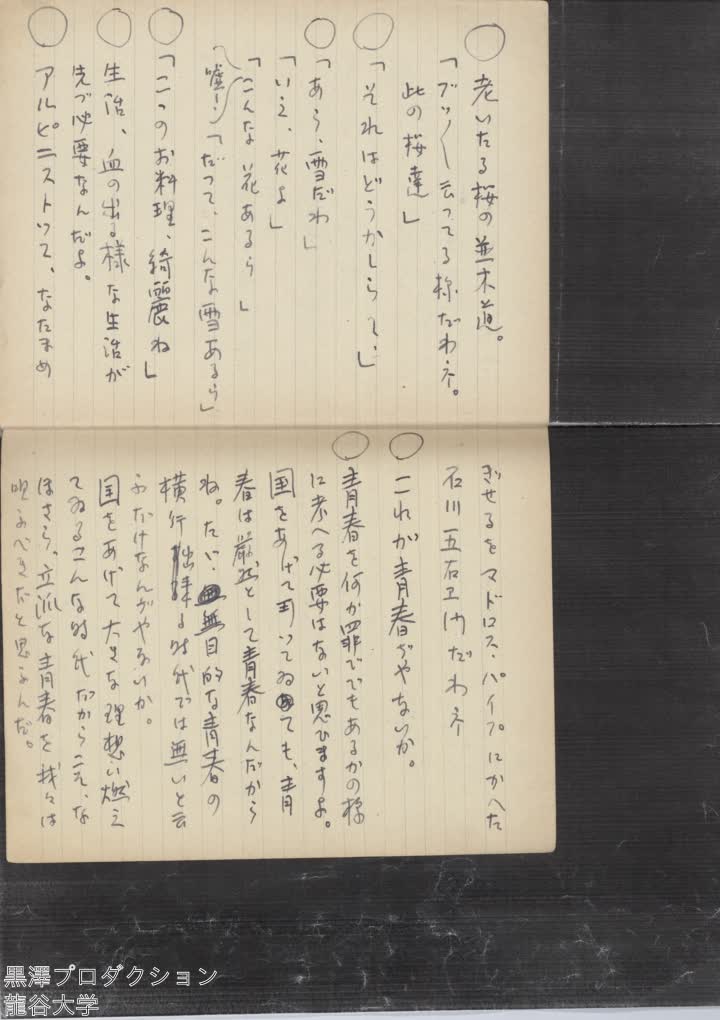 ○ 老いたる桜の並木道。
「ブツ〱云つてる様だわネ。
此の桜達」
○ 「それはどうかしらて、」
○ 「あら、雪だわ」
「いえ、花よ」
「こんな花あるら」
「嘘!」「だつて、こんな雪あるら」
○ 「こつのお料理、綺麗ね」
○ 生活、血の出る様な生活が
先づ必要なんだよ。
○ アルピニストつて、なたまめ
ぎせるをマドロス・パイプにかへた
石川五右エ門だわネ
○ これが青春ぢやないか。
○ 青春を何か罪ででもあるかの様
に考へる必要はないと思ひますよ。
国をあげて戦つてゐても、青
春は厳然として青春なんだから
ね。たゞ、無目的な青春の
横行する時代では無いと云
ふだけなんぢやないか。
国をあげて大きな理想に燃え
てゐるこんな時代だからこそ、な
ほさら、立派な青春を我々は
唄ふべきだと思ふんだ。
黒澤プロダクション
龍谷大学